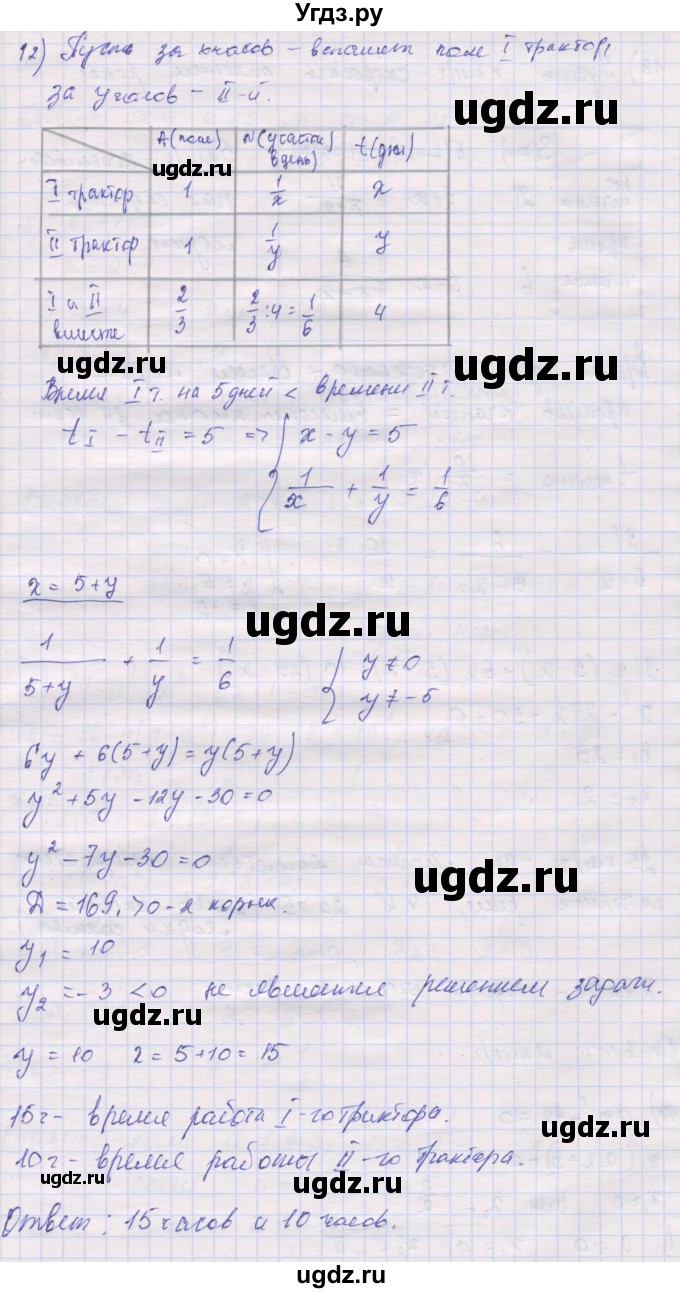 Угдз.ру
12) Пусть за x часов – вспашет поле I трактор,
за y часов – II-й.
A(поле) N(участки в день) t(дни)
I трактор 1 1/x x
II трактор 1 1/y y
I и II вместе 2/3 2/3 : 4 = 1/6 4
Время I т. на 5 дней < времени II т.
t I – t II = 5 => { x – y = 5
1/x + 1/y = 1/6
x = 5+y
1/(5+y) + 1/y = 1/6 { y ≠ 0
y ≠ –5
6y + 6(5+y) = y(5+y)
y² + 5y – 12y – 30 = 0
y² – 7y – 30 = 0
Д = 169, >0 – 2 корня.
y₁ = 10
y₂ = – 3 < 0 не является решением задачи.
y = 10 2 = 5+10 = 15
15ч – время работа I-го трактора.
10ч – время работы II-го трактора.
Ответ: 15 часов и 10 часов.
ugdz.ru
ugdz.ru
ugdz.ru
ugdz.ru
ugdz.ru
ugdz.ru
ugdz.ru
ugdz.ru
ugdz.ru
ugdz.ru
ugdz.ru
ugdz.ru
ugdz.ru
ugdz.ru